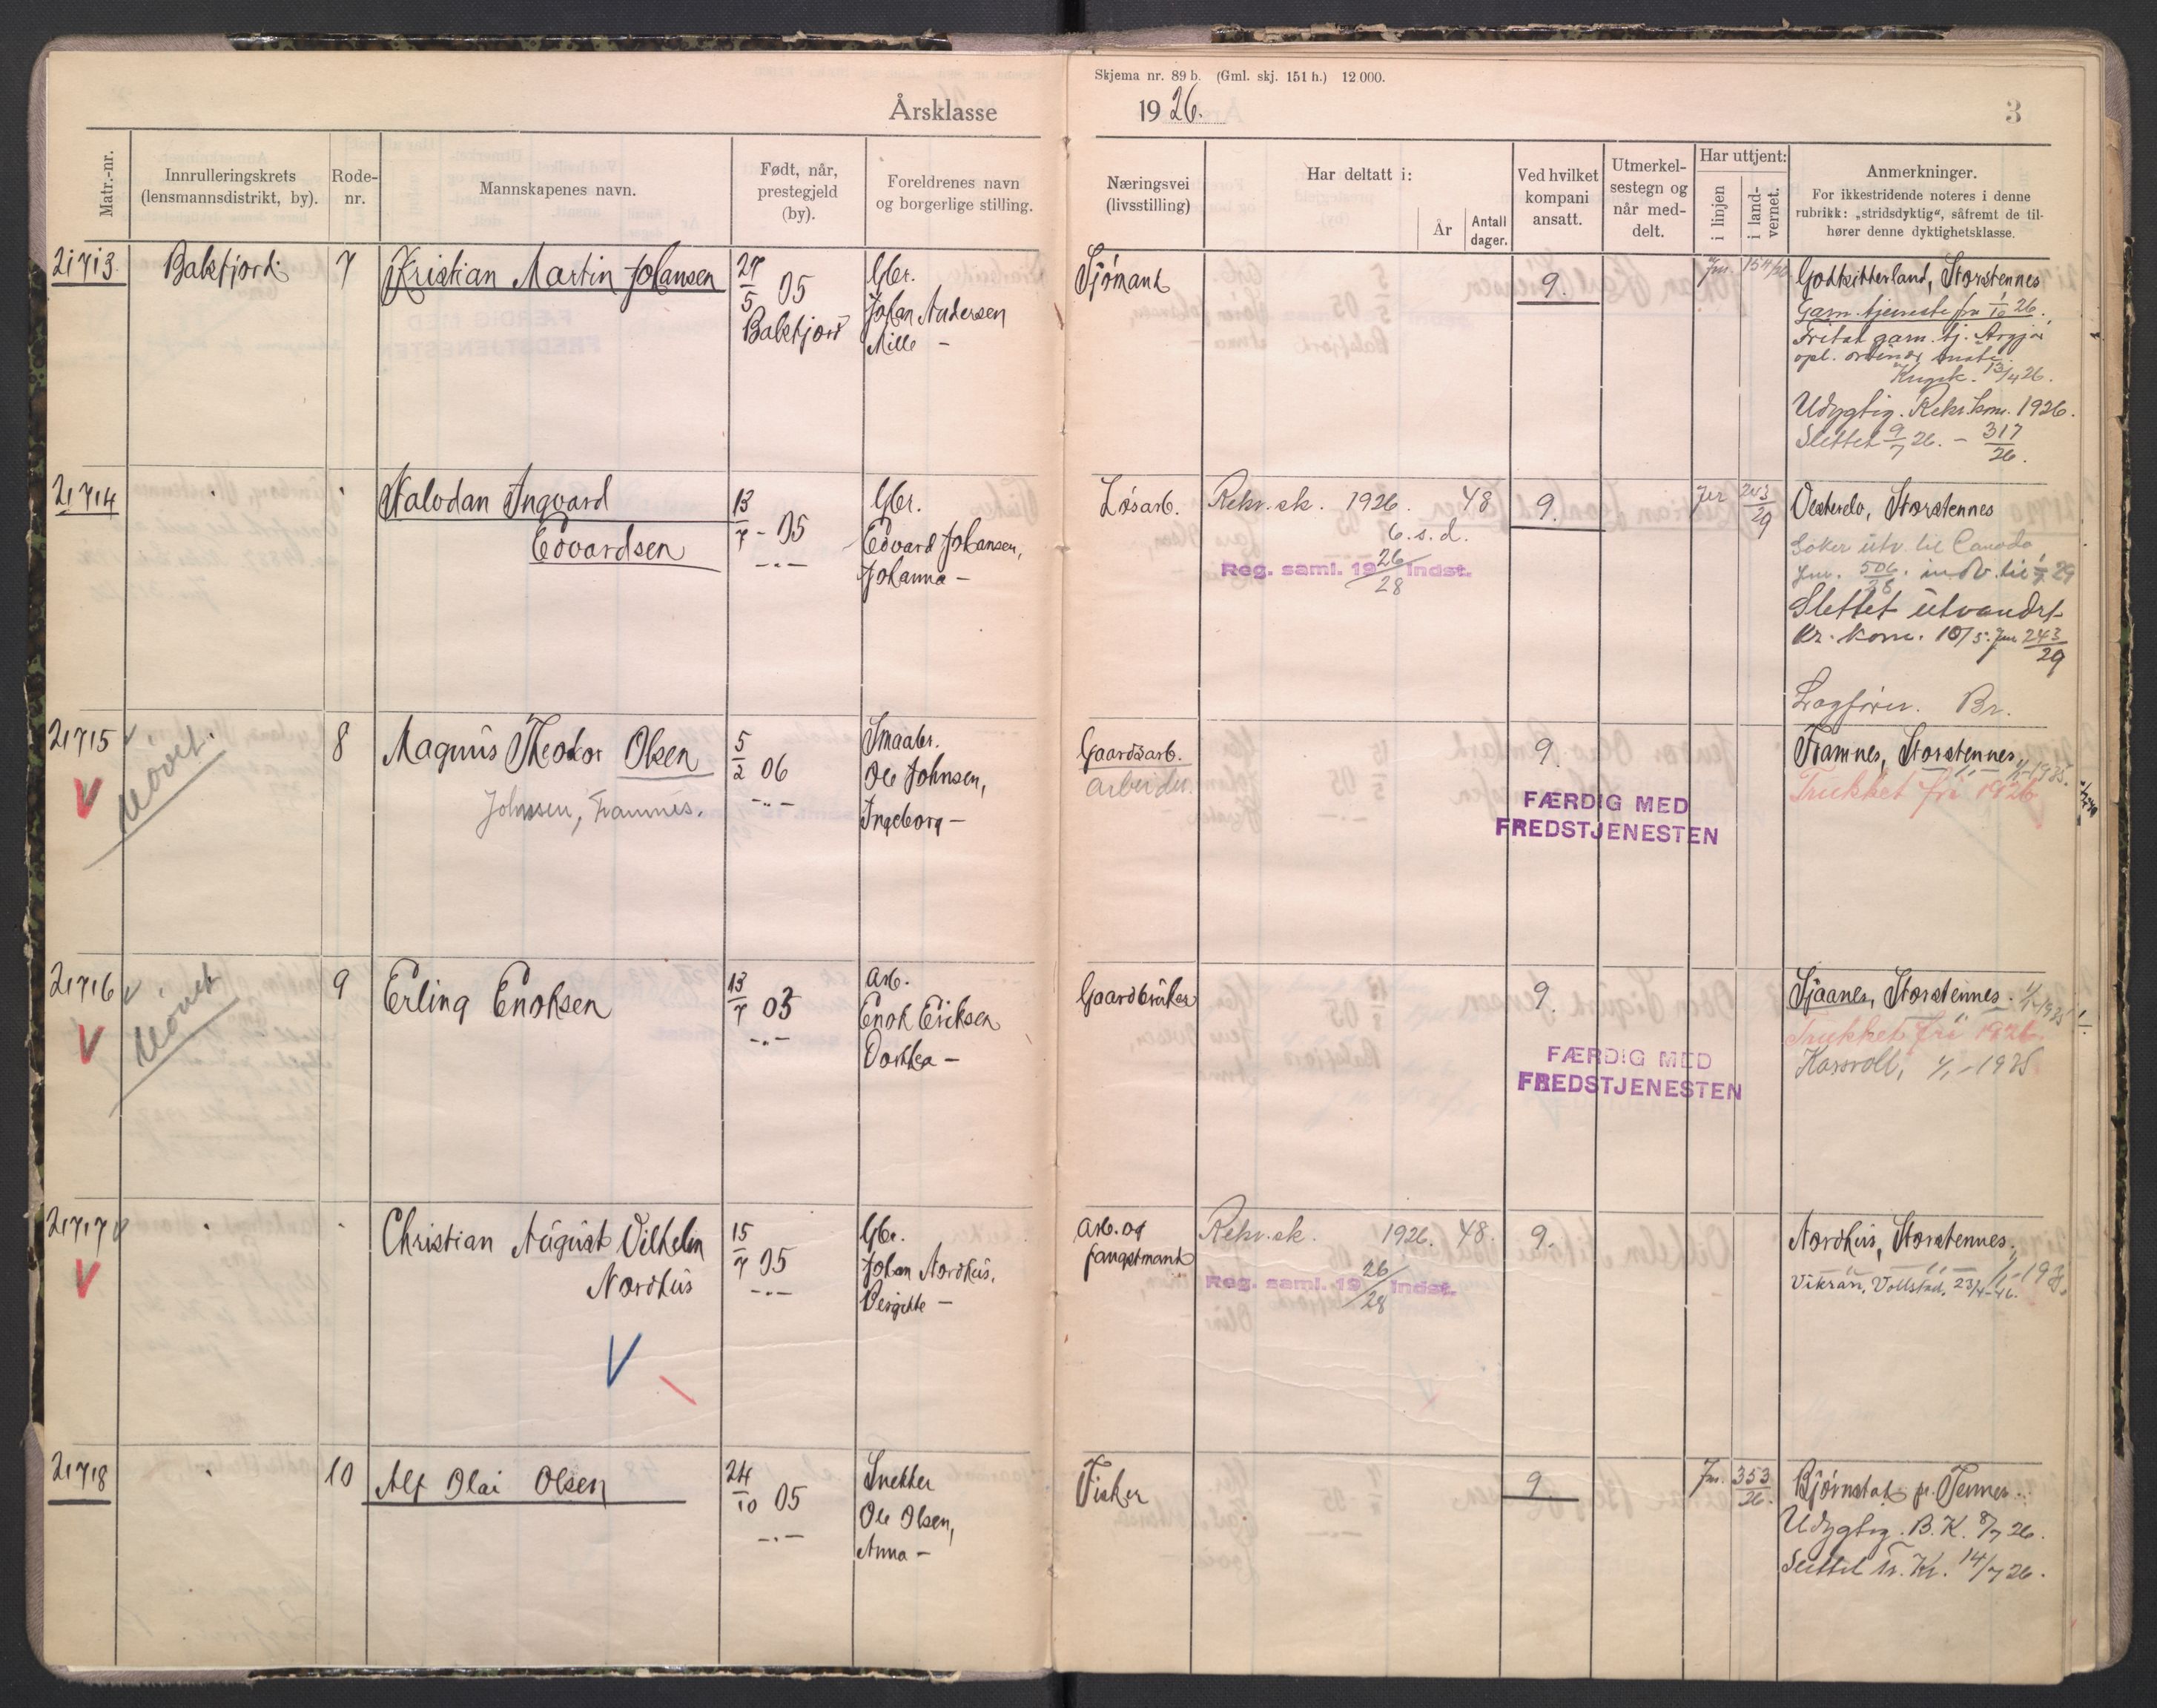 Skjema nr. 89 b. (Gml. skj. 151 h.) 12 000.
Årsklasse 1926.
3
Matr.-nr.
Innrulleringskrets
(lensmannsdistrikt, by).
Rode-
nr.
Mannskapenes navn.
Født, når,
prestegjeld
(by).
Foreldrenes navn
og borgerlige stilling.
Næringsvei
(livsstilling)
Har deltatt i:
År
Antall
dager.
Ved hvilket
kompani
ansatt.
Utmerkel-
sestegn og
når med-
delt.
Har uttjent:
i linjen
i land-
vernet.
Anmerkninger.
For ikkestridende noteres i denne
rubrikk: „stridsdyktig“, såfremt de til-
hører denne dyktighetsklasse.
21713
Balsfjord
7
Kristian Martin Johansen
27/5 05
Balsfjord
Gbr.
Johan Andersen
Mille –
Sjømand
9.
Jnr. 154/26
Storstennes
Garn. tjeneste fra 1/10 26.
Fritat garn. tj.
13/4 26.
Udygtig. Rekr. kom. 1926.
Slettet 9/7 26. – 317/26.
21714
Halvdan Ingvard
Edvardsen
13/7 - 05
–„–
Gbr.
Edvard Johansen,
Johanna –
Løsarb.
Rekr. sk. 1926. 48
6. s. d.
Reg. saml. 1926/28 indst.
9.
Jnr 243/29
Storstennes
Søker utv. til Canada
Jnr. 506/28. indv. til 1/7 29
Slettet utvandr.
Kr. kom. 10/5. Jnr 243/29
Lagfører. Br.
21715
8
Magnus Theodor Olsen
Johnsen, Framnes.
5/2 06
–„–
Smaabr.
Ole Johnsen,
Ingeborg –
Gaardsarb.
arbeider.
9.
FÆRDIG MED
FREDSTJENESTEN
Framnes, Storstennes
1/1-1935.
Trukket fri 1926
21716
9
Erling Enoksen
13/7 03
–„–
Arb.
Enok Eriksen
Dorthea –
Gaardbruker
9.
FÆRDIG MED
FREDSTJENESTEN
Sjaanes, Storstennes. 1/1-1935
Trukket fri 1926.
1/1-1935
21717
Christian August Vilhelm
Nordhus
15/7 05
–„–
Gbr.
Johan Nordhus,
Bergitte –
Arb. og
fangstmand
Rekr. sk. 1926. 48.
Reg. saml. 1926/28 indst.
9.
Nordhus, Storstennes.
Vikran, Vollstad, 23/4-46.
21718
10
Alf Olai Olsen
24/10 05
–„–
Snekker
Ole Olsen,
Anna –
Fisker
9.
Jnr. 353/26.
Bjørnstad pr. Tennes.
Udygtig. B. K. 8/7 26.
Slettet Tr. Kr. 14/7 26.